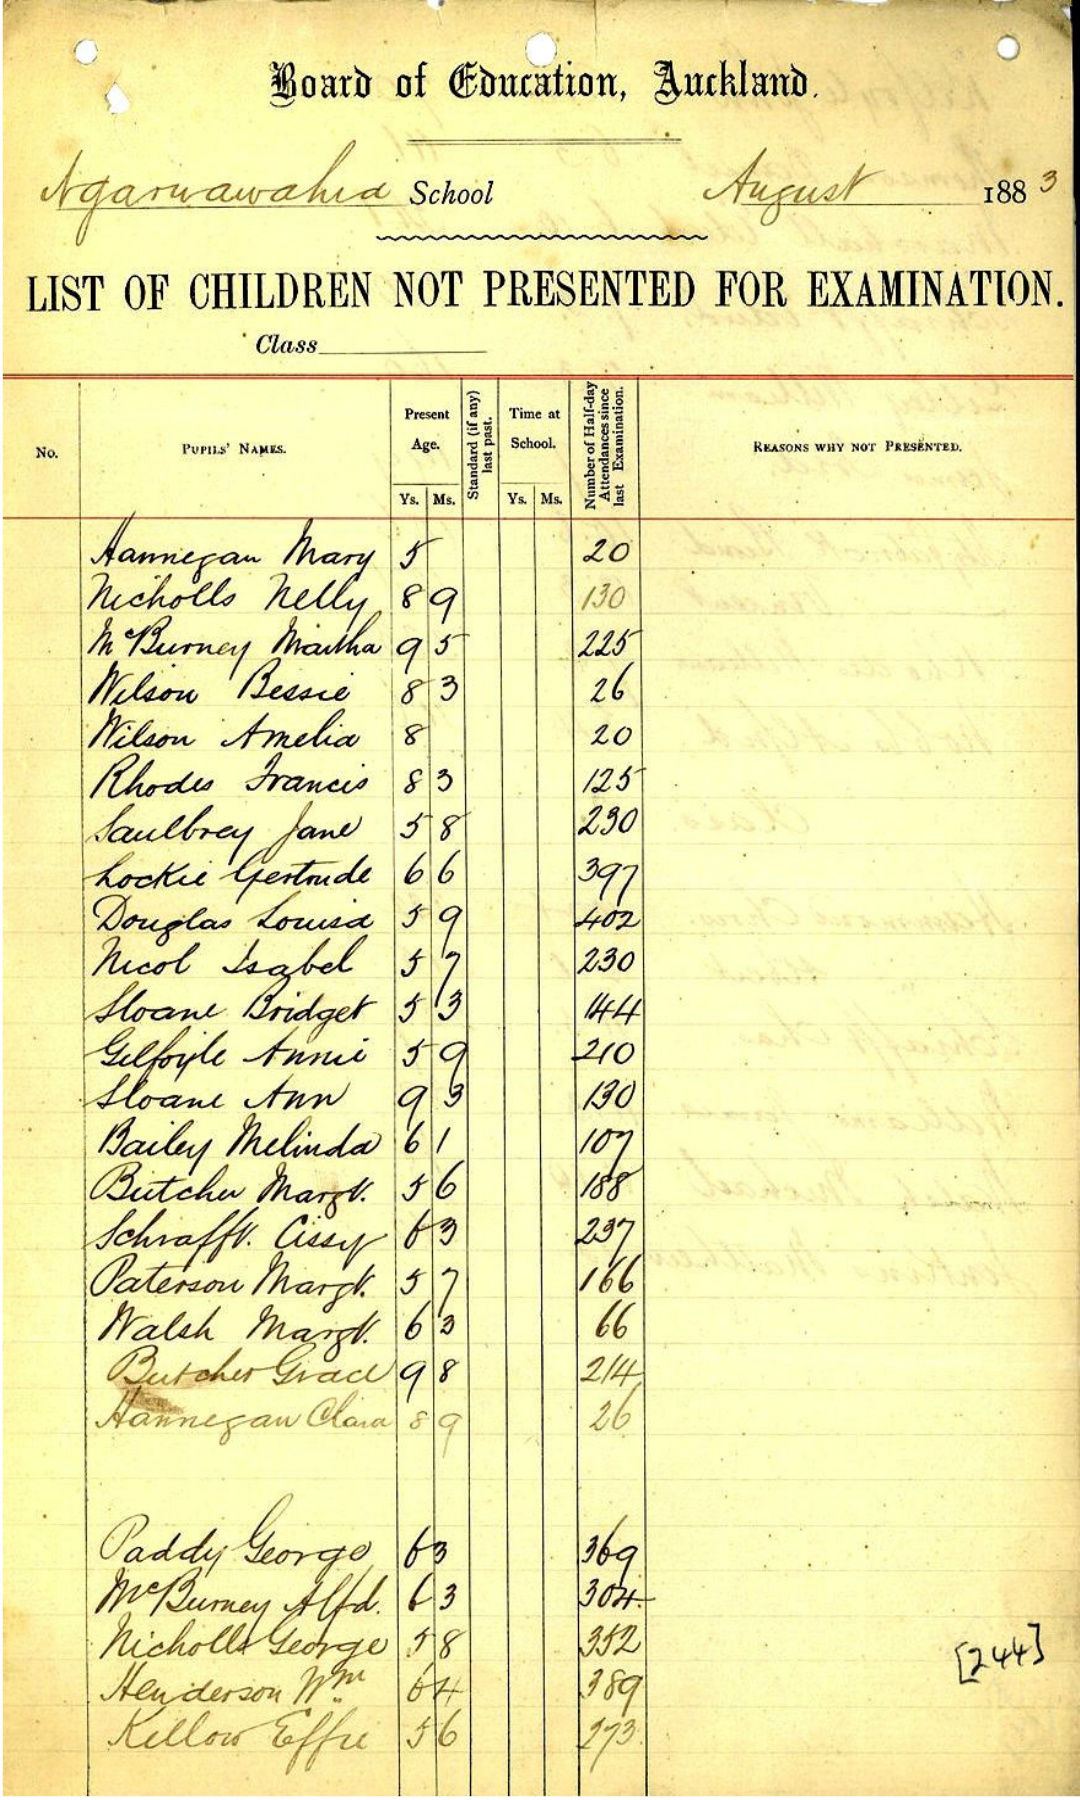 Board of Education, Auckland.
Ngaruawahia School August 1883
LIST OF CHILDREN NOT PRESENTED FOR EXAMINATION.
Class
No. PUPILS' NAMES. Present Age. Ys. Ms. Standard (if any) last past. Time at School. Ys. Ms. Number of Half-day Attendances since last Examination. REASONS WHY NOT PRESENTED.
Hannegan Mary 5 20
Nicholls Nelly 8 9 130
McBurney Martha 9 5 225
Wilson Bessie 8 3 26
Wilson Amelia 8 20
Rhodes Francis 8 3 125
Saulbrey Jane 5 8 230
Lockie Gertrude 6 6 397
Douglas Louisa 5 9 402
Nicol Isabel 5 7 230
Sloane Bridget 5 3 144
Gilfoyle Annie 5 9 210
Sloane Ann 9 3 130
Bailey Melinda 6 1 107
Butcher Margt. 5 6 188
Schrafft. Cissy 6 3 237
Paterson Margt. 5 7 166
Walsh Margt. 6 3 66
Butcher Grace 9 8 214
Hannegan Clara 8 9 26
Paddy George 6 3 369
McBurney Alfd. 6 3 304
Nicholls George 5 8 352
[244]
Henderson Wm 6 4 389
Kellow Effie 5 6 273